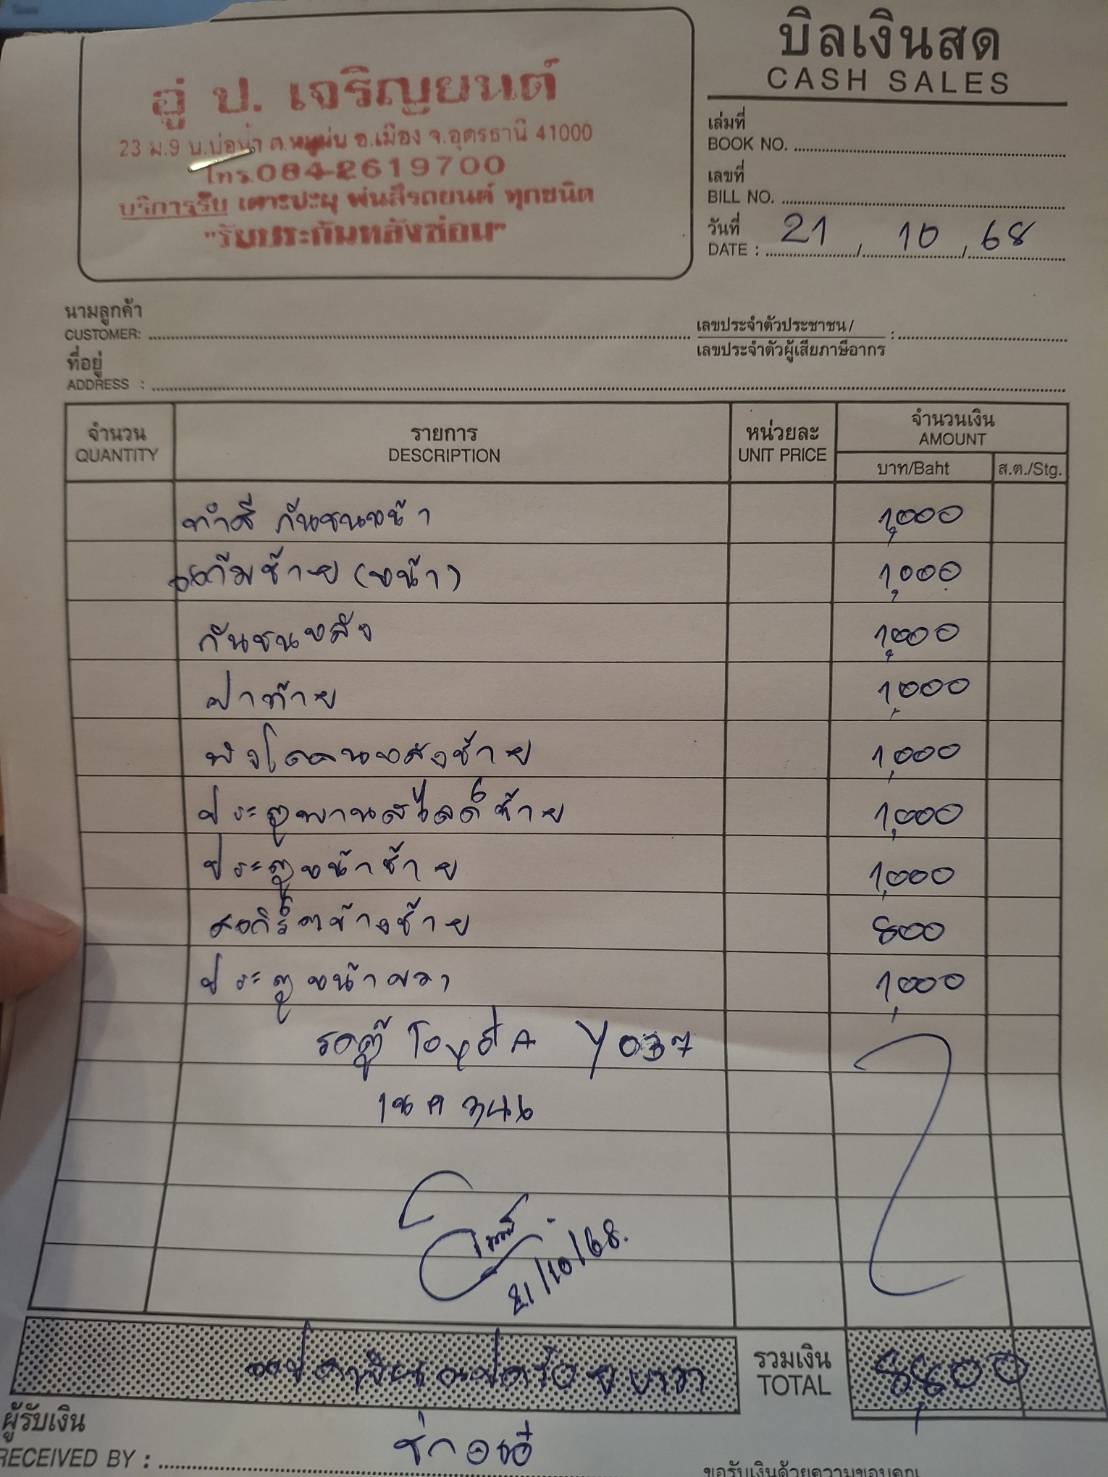 บิลเงินสด
CASH SALES
อู่ ป. เจริญยนต์
23 ม.9 บ.บ่อน้ำ ต.หมูม่น อ.เมือง จ.อุดรธานี 41000
โทร.084-2619700
บริการรับ เคาะปะผุ พ่นสีรถยนต์ ทุกชนิด
"รับประกันหลังซ่อม"
เล่มที่
BOOK NO.
เลขที่
BILL NO.
วันที่
DATE : 21 / 10 / 68
นามลูกค้า
CUSTOMER:
เลขประจำตัวประชาชน/ :
เลขประจำตัวผู้เสียภาษีอากร
ที่อยู่
ADDRESS :
จำนวน รายการ หน่วยละ จำนวนเงิน
QUANTITY DESCRIPTION UNIT PRICE AMOUNT
บาท/Baht ส.ต./Stg.
ทำสี กันชนหน้า 1,000
แก้มซ้าย (หน้า) 1,000
กันชนหลัง 1,000
ฝาท้าย 1,000
บังโคลนหลังซ้าย 1,000
ประตูบานสไลด์ซ้าย 1,000
ประตูหน้าซ้าย 1,000
สเกิร์ตข้างซ้าย 800
ประตูหน้าขวา 1,000
รถตู้ โตโยต้า Y037
1นค 346
21/10/68.
แปดพันแปดร้อยบาท
รวมเงิน
TOTAL 8,800
ผู้รับเงิน
RECEIVED BY :
ขอรับเงินด้วยความขอบคุณ